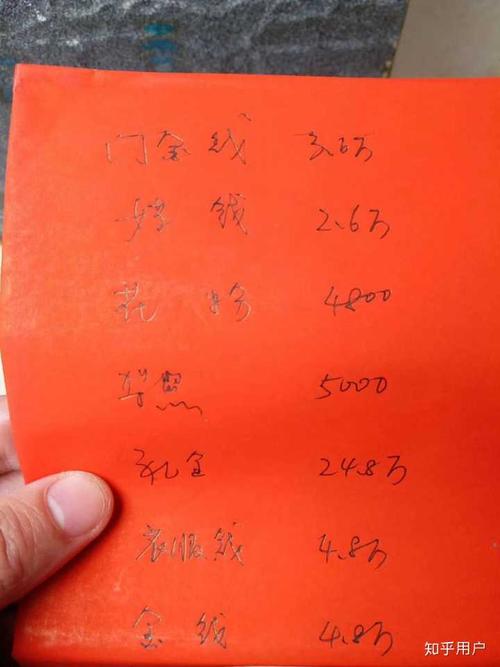 门金钱 3.6万
钱 2.6万
花粉 4800
5000
礼金 24.8万
衣服钱 4.8万
金钱 4.8万
知乎用户